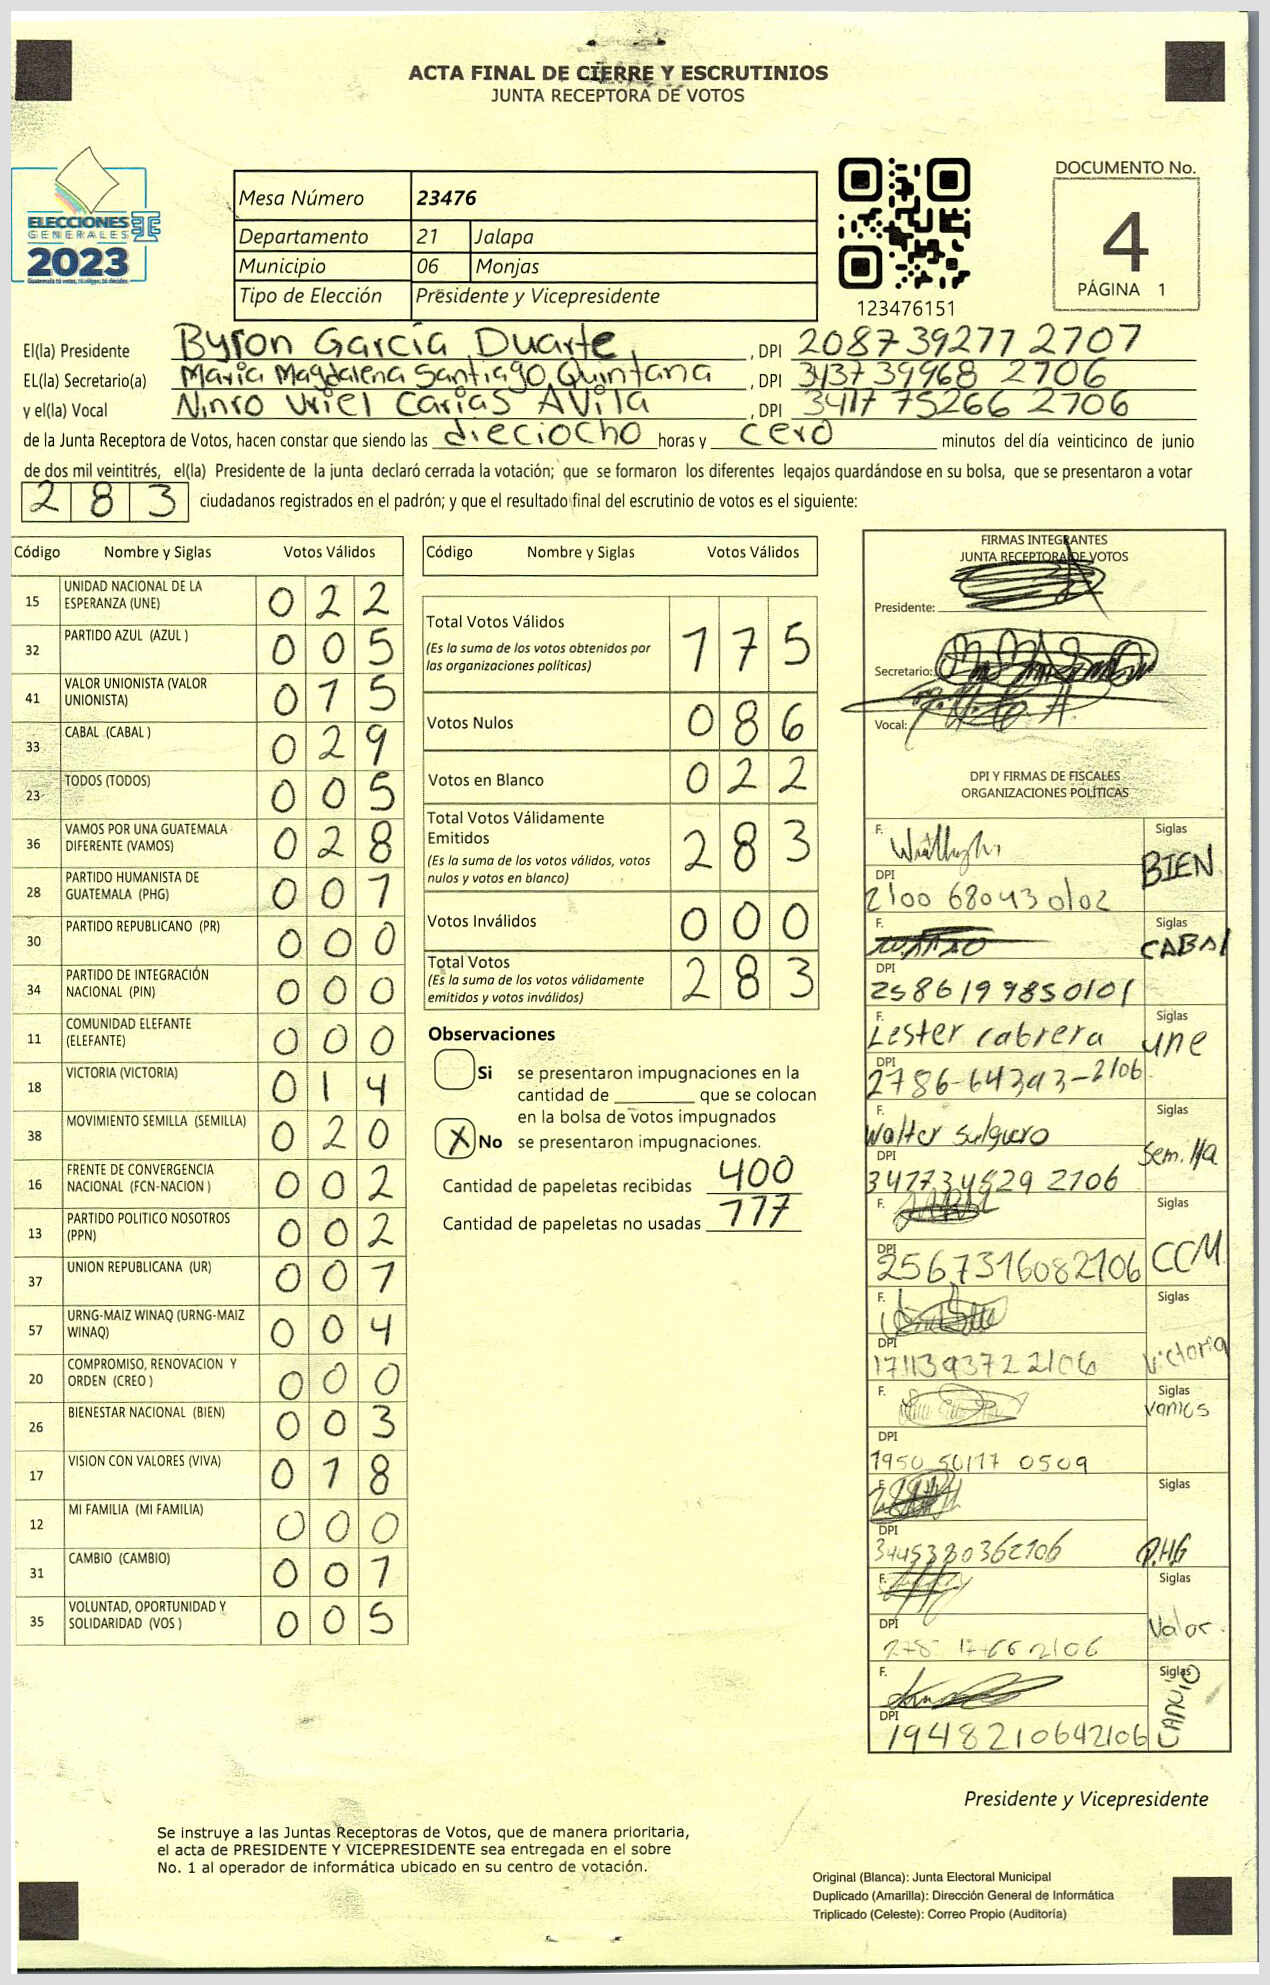 ACTA FINAL DE CIERRE Y ESCRUTINIOS
JUNTA RECEPTORA DE VOTOS
ELECCIONES
GENERALES
2023
Guatemala tú votas, tú eliges, tú decides
Mesa Número 23476
Departamento 21 Jalapa
Municipio 06 Monjas
Tipo de Elección Presidente y Vicepresidente
123476151
DOCUMENTO No.
4
PÁGINA 1
El(la) Presidente Byron García Duarte, DPI 2087 39277 2707
EL(la) Secretario(a) Maria Magdalena Santiago Quintana, DPI 3437 39968 2706
y el(la) Vocal Ninro Uriel Carias Avila, DPI 3417 75266 2706
de la Junta Receptora de Votos, hacen constar que siendo las dieciocho horas y cero minutos del día veinticinco de junio
de dos mil veintitrés, el(la) Presidente de la junta declaró cerrada la votación; que se formaron los diferentes legajos guardándose en su bolsa, que se presentaron a votar
283 ciudadanos registrados en el padrón; y que el resultado final del escrutinio de votos es el siguiente:
Código Nombre y Siglas Votos Válidos
15 UNIDAD NACIONAL DE LA ESPERANZA (UNE) 022
32 PARTIDO AZUL (AZUL ) 005
41 VALOR UNIONISTA (VALOR UNIONISTA) 015
33 CABAL (CABAL ) 029
23 TODOS (TODOS) 005
36 VAMOS POR UNA GUATEMALA DIFERENTE (VAMOS) 028
28 PARTIDO HUMANISTA DE GUATEMALA (PHG) 001
30 PARTIDO REPUBLICANO (PR) 000
34 PARTIDO DE INTEGRACIÓN NACIONAL (PIN) 000
11 COMUNIDAD ELEFANTE (ELEFANTE) 000
18 VICTORIA (VICTORIA) 014
38 MOVIMIENTO SEMILLA (SEMILLA) 020
16 FRENTE DE CONVERGENCIA NACIONAL (FCN-NACION ) 002
13 PARTIDO POLITICO NOSOTROS (PPN) 002
37 UNION REPUBLICANA (UR) 001
57 URNG-MAIZ WINAQ (URNG-MAIZ WINAQ) 004
20 COMPROMISO, RENOVACION Y ORDEN (CREO ) 000
26 BIENESTAR NACIONAL (BIEN) 003
17 VISION CON VALORES (VIVA) 018
12 MI FAMILIA (MI FAMILIA) 000
31 CAMBIO (CAMBIO) 001
35 VOLUNTAD, OPORTUNIDAD Y SOLIDARIDAD (VOS ) 005
Código Nombre y Siglas Votos Válidos
Total Votos Válidos 175
(Es la suma de los votos obtenidos por
las organizaciones políticas)
Votos Nulos 086
Votos en Blanco 022
Total Votos Válidamente
Emitidos 283
(Es la suma de los votos válidos, votos
nulos y votos en blanco)
Votos Inválidos 000
Total Votos 283
(Es la suma de los votos válidamente
emitidos y votos inválidos)
Observaciones
Si se presentaron impugnaciones en la
cantidad de ________ que se colocan
en la bolsa de votos impugnados
X No se presentaron impugnaciones.
Cantidad de papeletas recibidas 400
Cantidad de papeletas no usadas 117
FIRMAS INTEGRANTES
JUNTA RECEPTORA DE VOTOS
Presidente:
Secretario:
Vocal:
DPI Y FIRMAS DE FISCALES
ORGANIZACIONES POLÍTICAS
F. Siglas BIEN
DPI 2100 68043 0102
F. Siglas CABAL
DPI 2586199850101
F. Lester Cabrera Siglas une
DPI 2786-64393-2106
F. Walter Salguero Siglas Semilla
DPI 347734529 2106
F. Siglas CCM
DPI 2567316082106
F. Siglas Victoria
DPI 1711393722106
F. Siglas Vamos
DPI 1950 50117 0509
F. Siglas P.H.G
DPI 3445380362106
F. Siglas Valor
DPI
F. Siglas
DPI 1948210642106
Presidente y Vicepresidente
Se instruye a las Juntas Receptoras de Votos, que de manera prioritaria,
el acta de PRESIDENTE Y VICEPRESIDENTE sea entregada en el sobre
No. 1 al operador de informática ubicado en su centro de votación.
Original (Blanca): Junta Electoral Municipal
Duplicado (Amarilla): Dirección General de Informática
Triplicado (Celeste): Correo Propio (Auditoría)